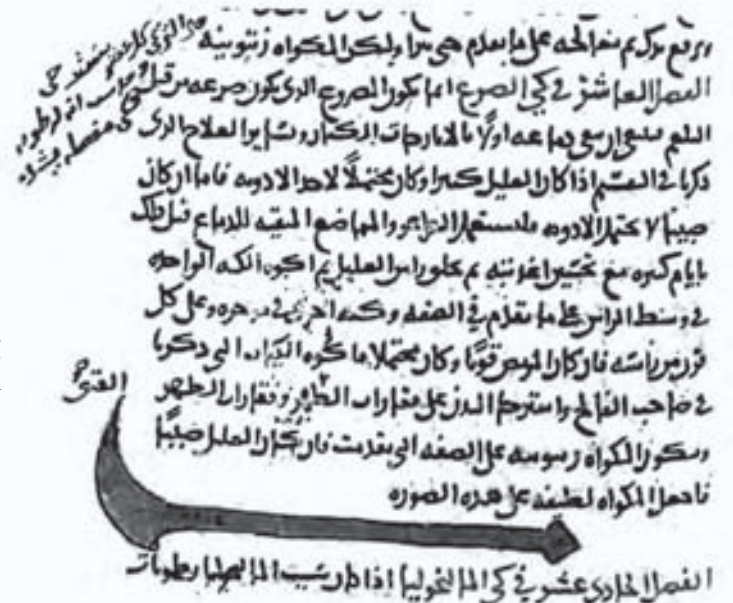 على ما تقدم ولكن المكواه زيتونيه
الفصل العاشر في كي الصرع انما يكون المصروع الذي يكون صرعه من قبل
البلغم ينبغي ان ينقى دماغه اولًا بالايارجات الكبار وسائر العلاج الذي
ذكرنا في التقسيم اذا كان العليل كبيرا وكان محتملًا لاخذ الادويه فاما ان كان
صبيا لا يحتمل الادويه فليستعمل الغراغر والمماضغ المنقيه للدماغ قبل ذلك
بايام كثيره مع تحسين اغذيته ثم يحلق راس العليل ثم اكوه الكيه الواحده
في وسط الراس على ما تقدم في الصفه وكيه اخرى في مؤخره وعلى كل
قرن من راسه فان كان المريض قويًا وكان محتملا فاكوه الكيات التي ذكرنا
في صاحب الفالج واسترخا البدن على فقارات وفقارات الظهر
ويكون المكواه زيتونيه على الصفه التي تقدمت فان كان العليل صبيًا
فاجعل المكواه لطيفه على هذه الصوره
الفصل الحادي عشر في كي المالنخوليا اذا كان سبب المالنخوليا رطوبات